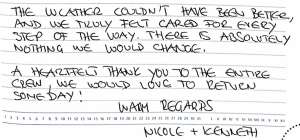 THE WEATHER COULDN'T HAVE BEEN BETTER,
AND WE TRULY FELT CARED FOR EVERY
STEP OF THE WAY. THERE IS ABSOLUTELY
NOTHING WE WOULD CHANGE.
A HEARTFELT THANK YOU TO THE ENTIRE
CREW, WE WOULD LOVE TO RETURN
SOMEDAY!
WARM REGARDS
NICOLE + KENNETH